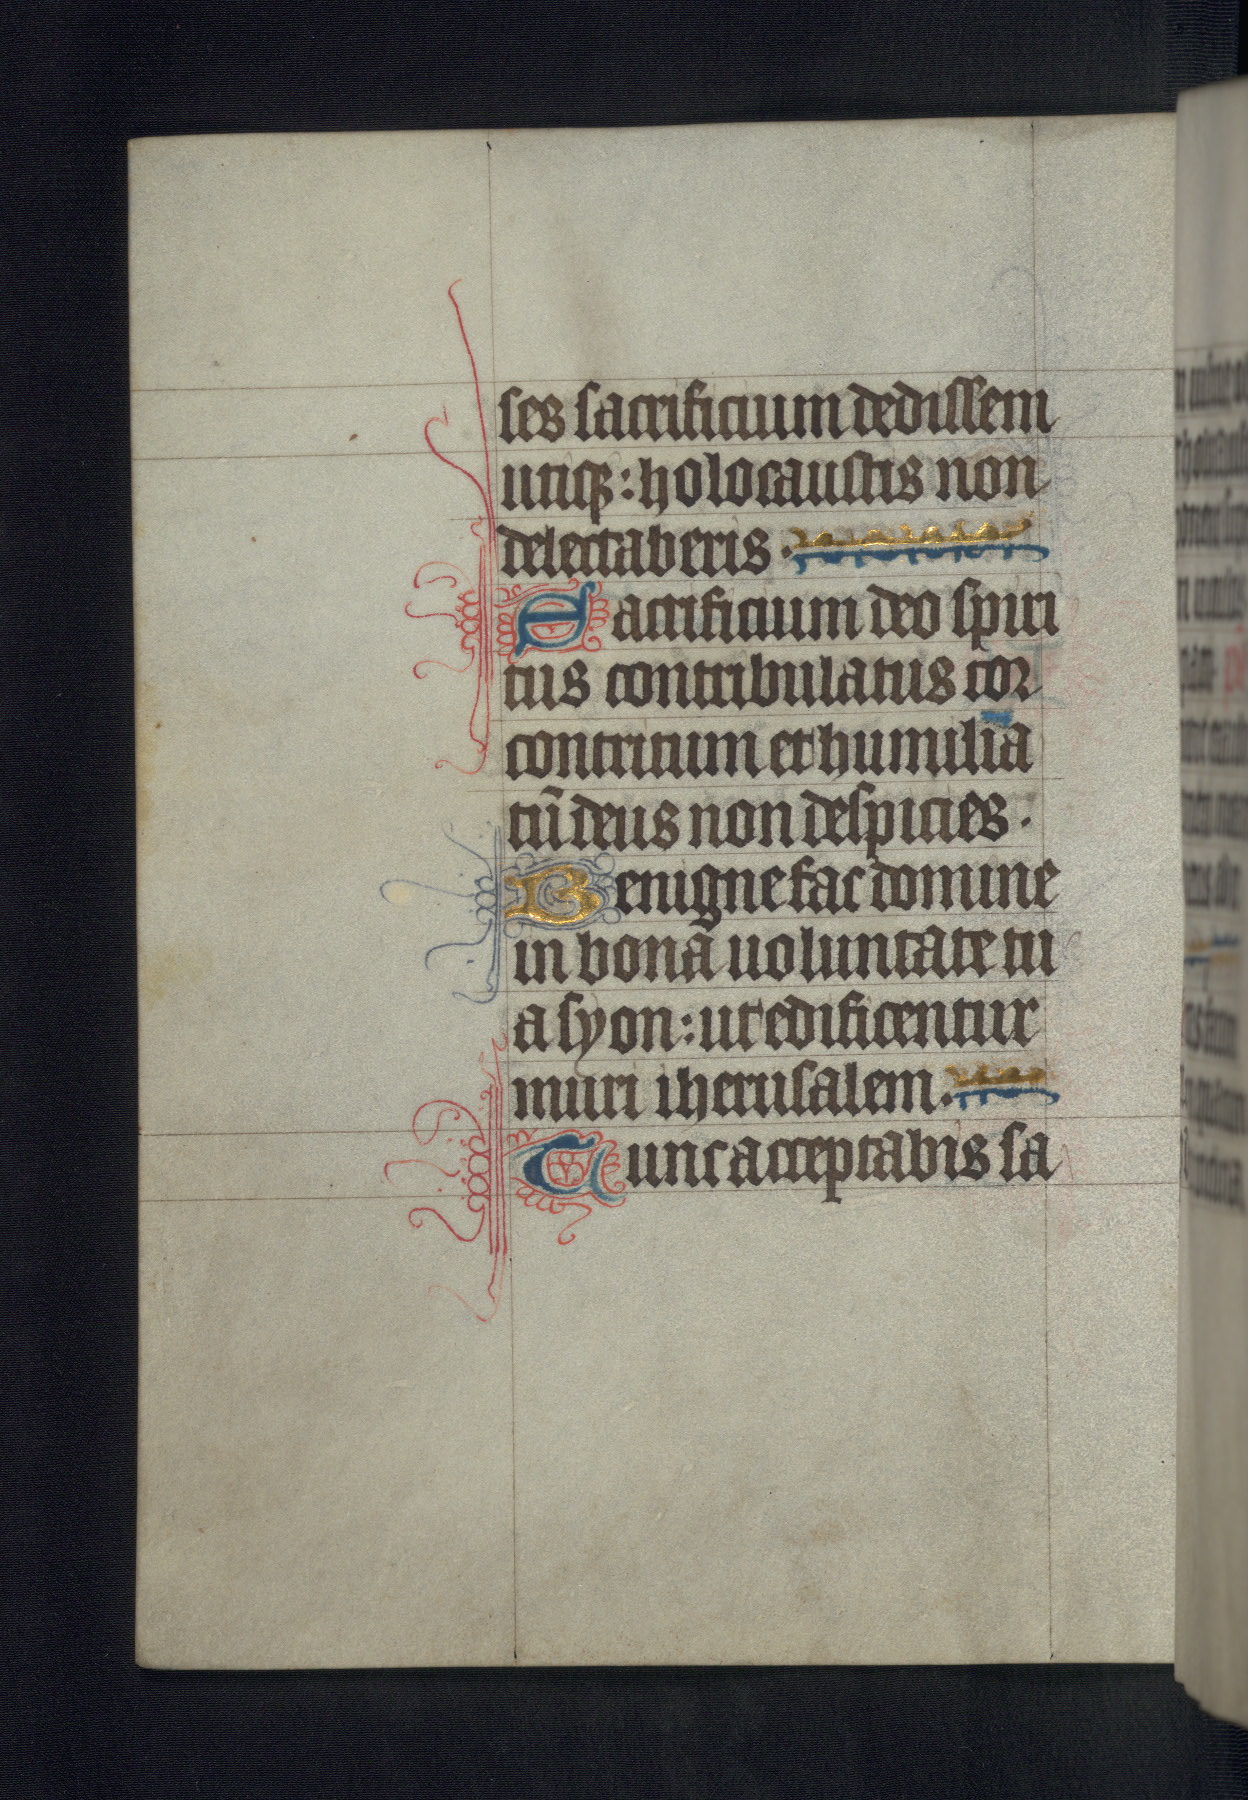 ses sacrificium dedissem
utiqꝫ : holocaustis non
delectaberis .
Sacrificium deo spiri
tus contribulatus cor
contritum et humilia
tū deus non despicies .
Benigne fac domine
in bona uoluntate tu
a syon : ut edificentur
muri iherusalem .
Tunc acceptabis sa